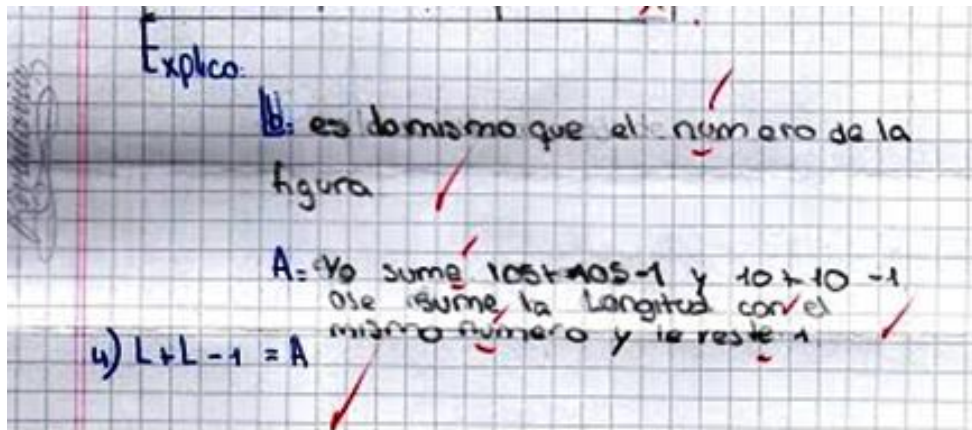 Explico:
b: es lo mismo que el numero de la
figura
A= Yo sume 105+105-1 y 10+10-1
Ose sume la Longitud con el
mismo numero y le reste 1
4) L+L-1 = A